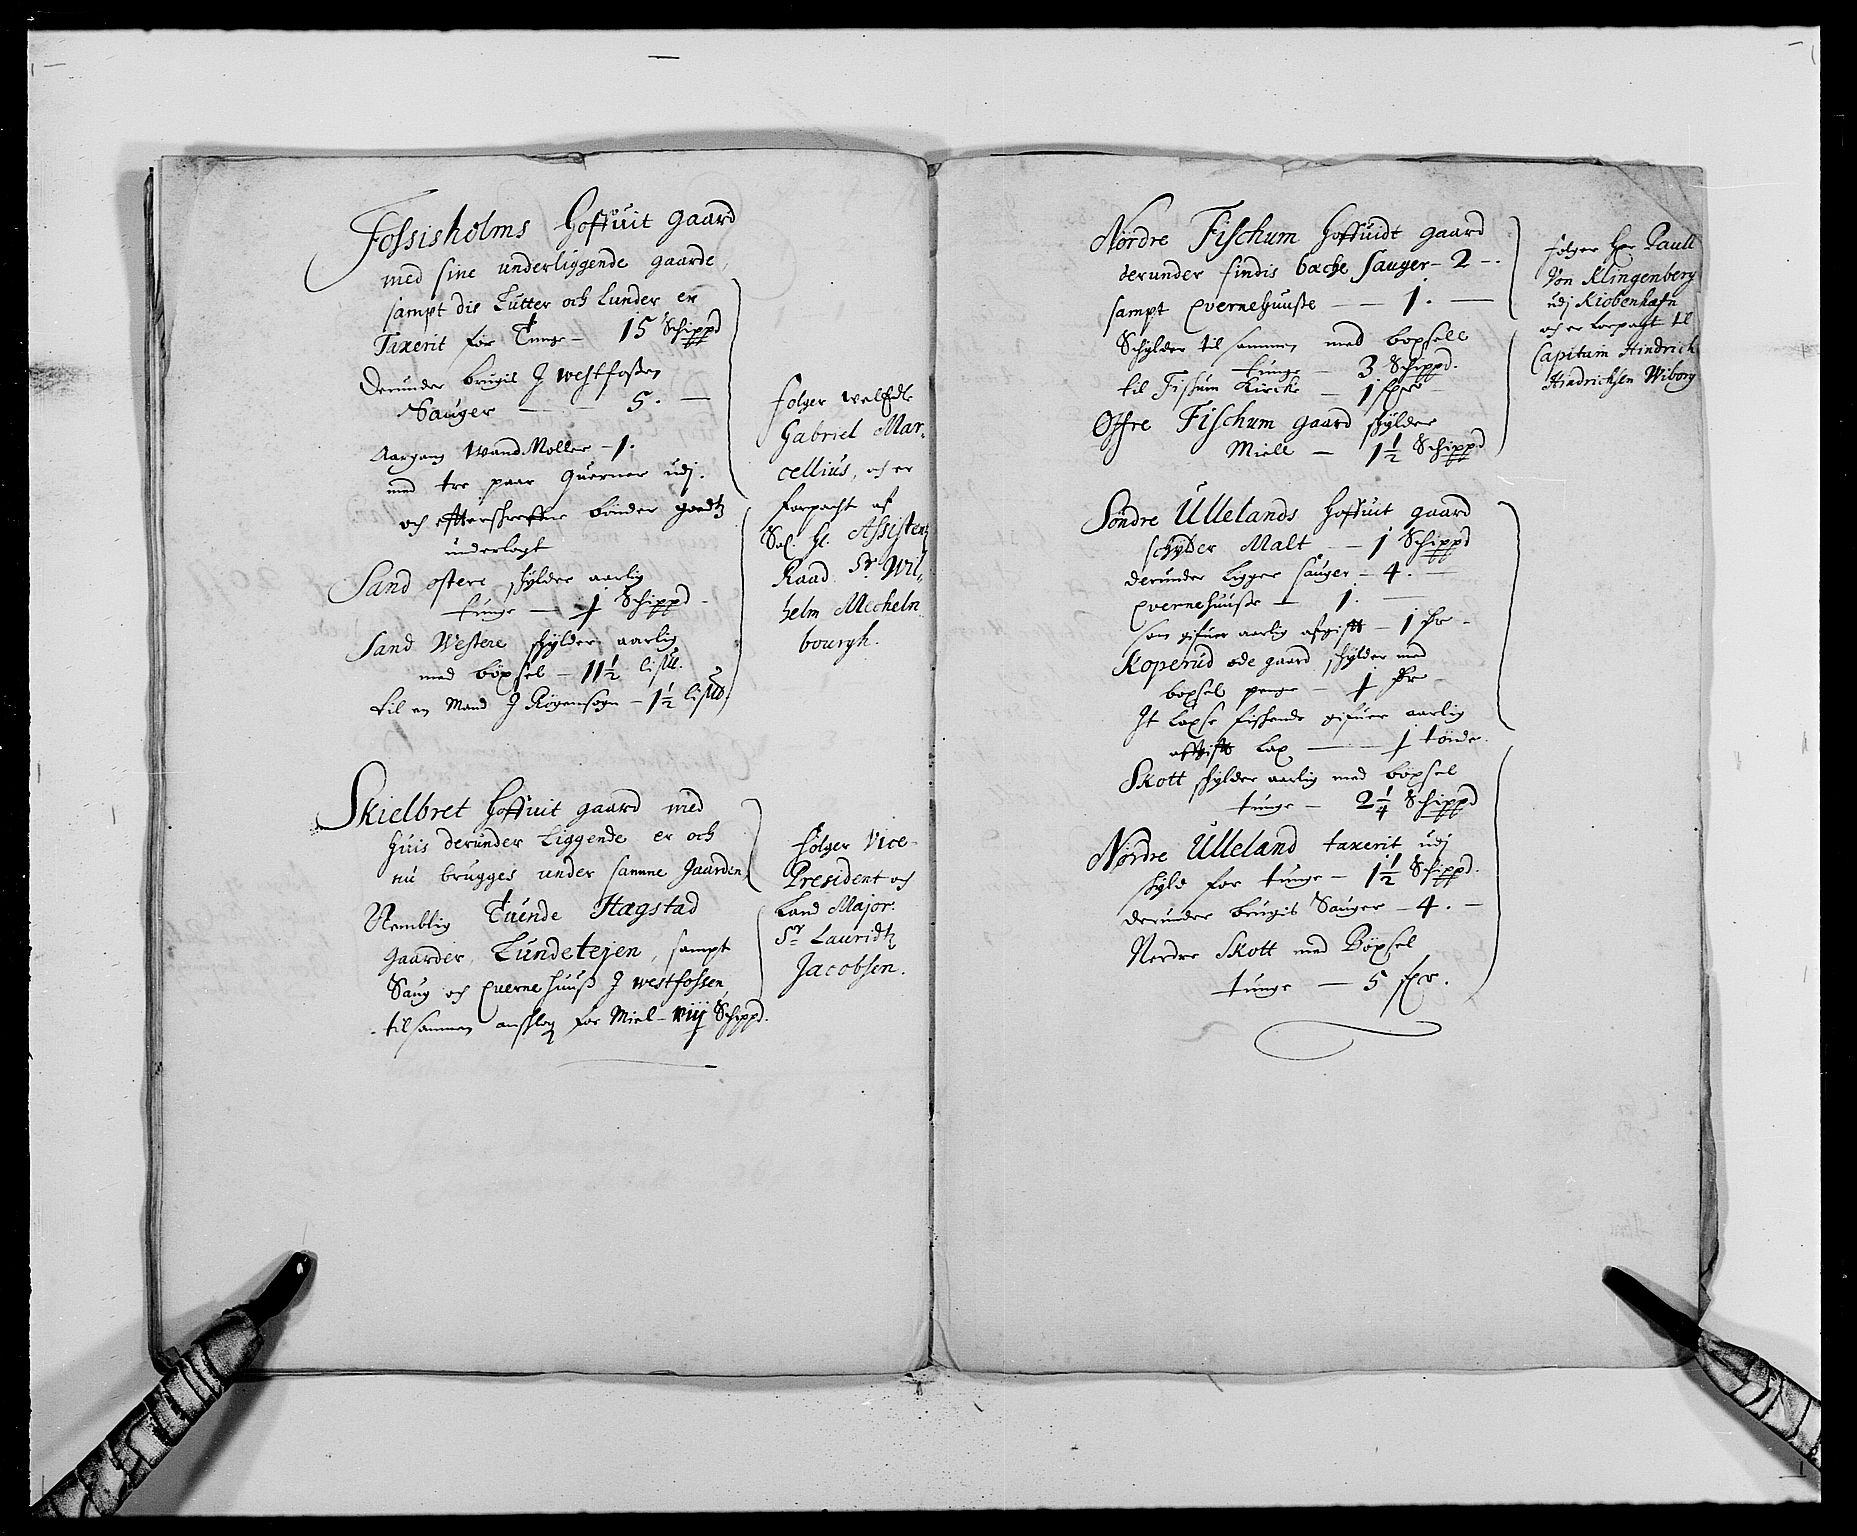 Fossisholms Hoffuit gaard
med sine underliggende gaarde,
sampt die Lutter och Lunder er
Taxerit for Tunge – 15 Schippd
Derunder brugis J westfossen
Sauger — 5. —
Aargang WandMoller – 1.
med tre paar Querner udj.
och efterschreffne bönder goedtz
underlagt
Sand ostere schylder aarlig
tunge — 1 Schippd –
Sand Westere schylder aarlig
med böxsel – 11½ lispd.
til en Mand J Rögensogn – 1½ lispd.
følger welEdle
Gabriel Mar-
cellius, och er
forpacht af
Sal. Hl. Assistentz
Raad Sr. Wil-
helm Mecheln-
bourgh.
Skielbret Hoffuit gaard med
huis derunder Liggende er och
nu brugges under samme Gaarden,
Nemblig Tuende Hagstad
gaarder, Lundetejen, sampt
Saug och Quernehuuss J westfossen
tilsammen anschlog for Miel – viij Schippd.
følger Vice-
President och
Land Major.
Sr. Lauridtz
Jacobsen.
Nordre Fischum Hoffuidt gaard
derunder findis bæche Sauger – 2 –.
sampt Qvernehuusse — 1. —
Schylder til sammen med boxsell
tunge — 3 Schippd.
til Fischum Kirche – 1
Øffre Fischum gaard schylder
Miell — 1½ Schippd
følger Her Paull
Von Klingenberg
udj Kiobenhafn
och er forpagt til
Capitain Hindrich
Hindrichsen Wiborg
Söndre Ullelands Hoffuit gaard
schylder Malt — 1 Schippd
derunder Ligger Sauger – 4. —
Qvernehuusse — 1. —
som gifuer aarlig afgifft – 1
Koperud øde gaard schylder med
boxsel penge – 1
Jt Laxse fischende gifuer aarlig
afgifft Lax — 1 tönde.
Skott schylder aarlig med böxsel
tunge — 2¼ Schippd
Nordre Ulleland taxerit udj
schyld for tunge – 1½ Schippd.
derunder brugis Sauger – 4. –
Nerdre Skott med Böxsel
tunge — 5